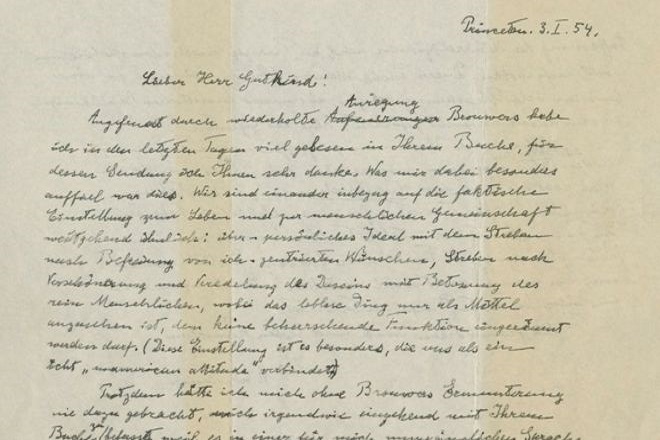 Princeton. 3. I. 54.
Lieber Herr Gutkind!
Anregung
Angefeuert durch wiederholte Brouwers habe
ich in den letzten Tagen viel gelesen in Ihrem Buche, für
dessen Sendung ich Ihnen sehr danke. Was mir dabei besonders
auffiel war dies. Wir sind einander inbezug auf die faktische
Einstellung zum Leben und zur menschlichen Gemeinschaft
weitgehend ähnlich: über-persönliches Ideal mit dem Streben
nach Befreiung von ich-zentrierten Wünschen, Streben nach
Verschönerung und Veredelung des Daseins mit Betonung des
rein Menschlichen, wobei das leblose Ding nur als Mittel
anzusehen ist, dem keine beherrschende Funktion eingeräumt
werden darf. (Diese Einstellung ist es besonders, die uns als ein
echt "unamerican attitude" verbindet)
Trotzdem hätte ich mich ohne Brouwers Ermunterung
nie dazu gebracht, mich irgendwie eingehend mit Ihrem
Buche zu befassen, weil es in einer für mich unzugänglichen Sprache